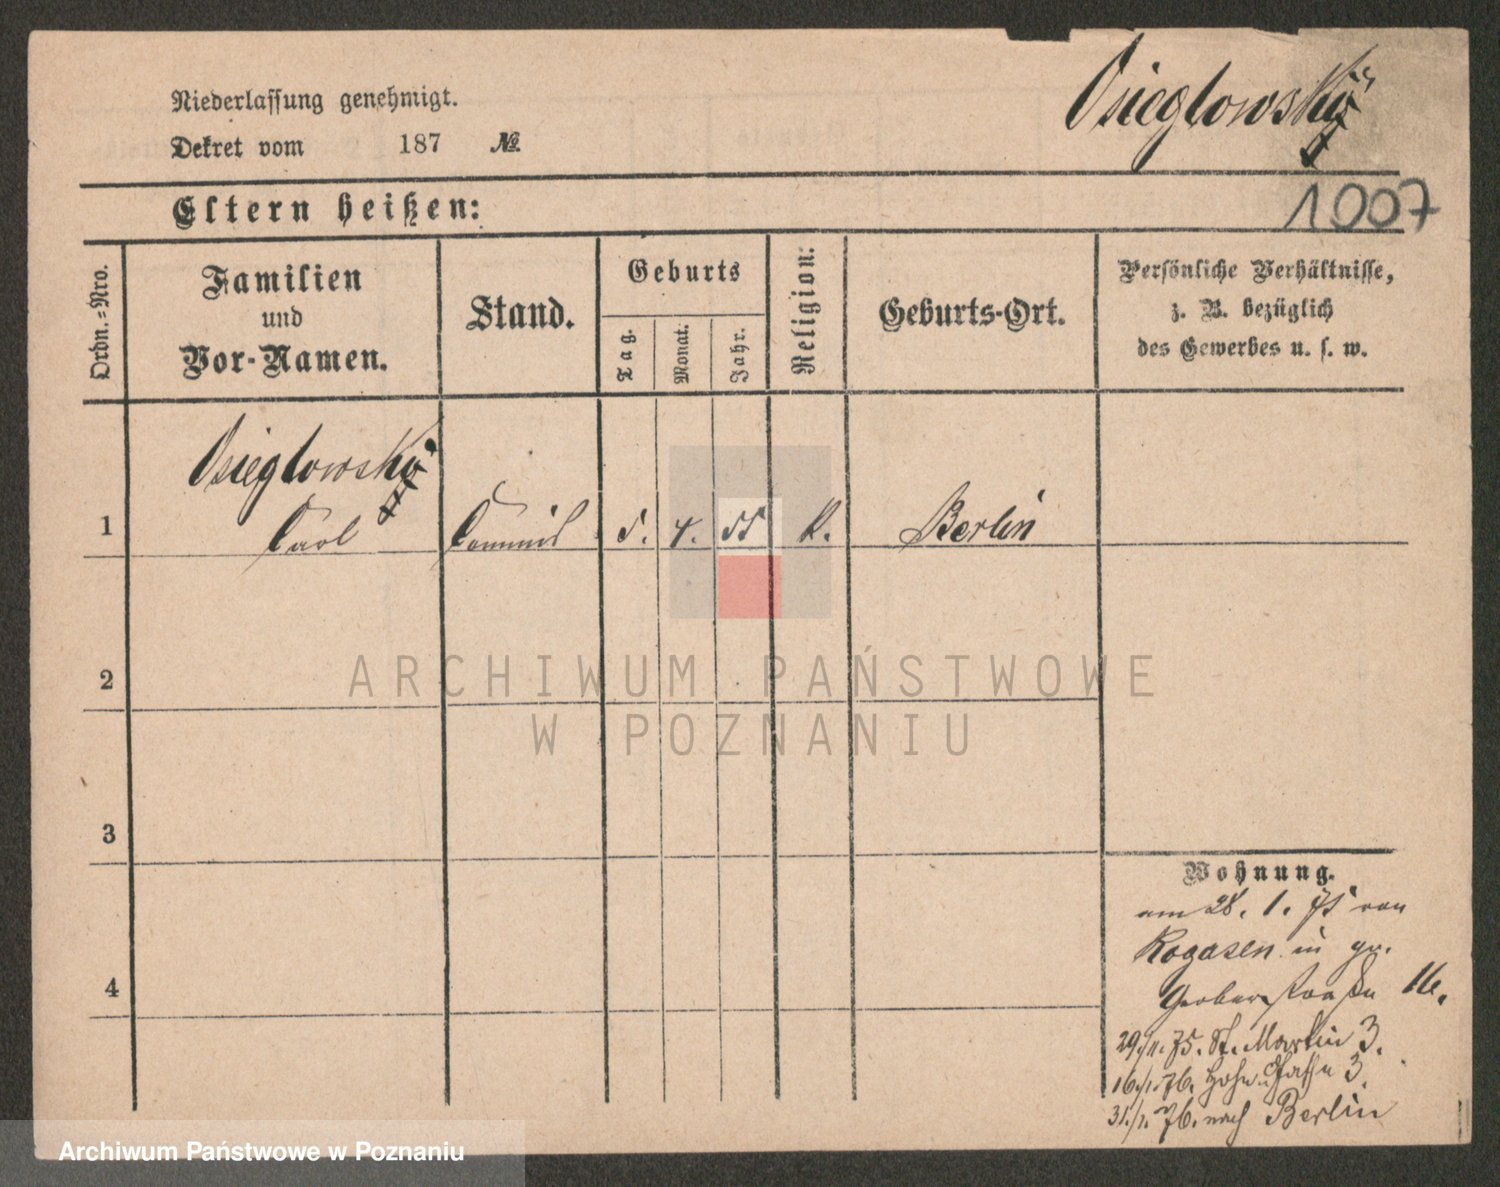 Niederlassung genehmigt.
Dekret vom 187 №
Osieglowski
1007
Eltern heißen:
Ordn.-Nro.
Familien
und
Vor-Namen.
Stand.
Geburts
Tag.
Monat.
Jahr.
Religion:
Geburts-Ort.
Persönliche Verhältnisse,
z. B. bezüglich
des Gewerbes u. s. w.
Osieglowski
1 Carl Commis 5. 4. 55 K. Berlin
2
3
4
Wohnung.
am 28. 1. 75 von
Rogasen in gr.
Gerberstraße 16.
29./11. 75. St. Martin 3.
16./1. 76. Hohe Gasse 3.
31./1. 76. nach Berlin
ARCHIWUM PAŃSTWOWE
W POZNANIU
Archiwum Państwowe w Poznaniu